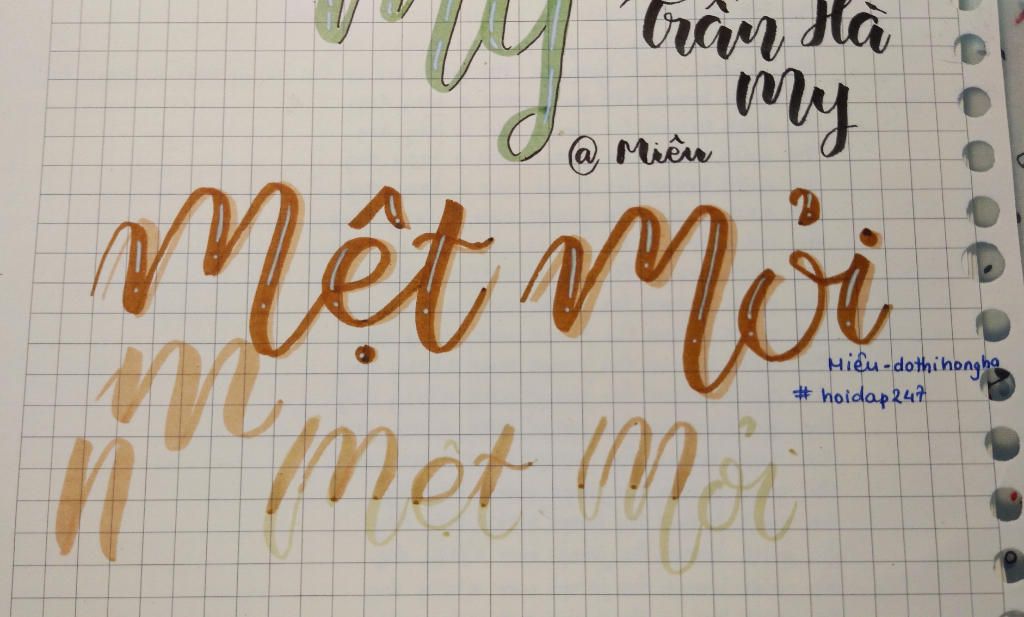 My
Trần Hà
My
@ Miêu
Mệt Mỏi
Miêu-dothihongha
# hoidap247
m
n Mệt Mỏi